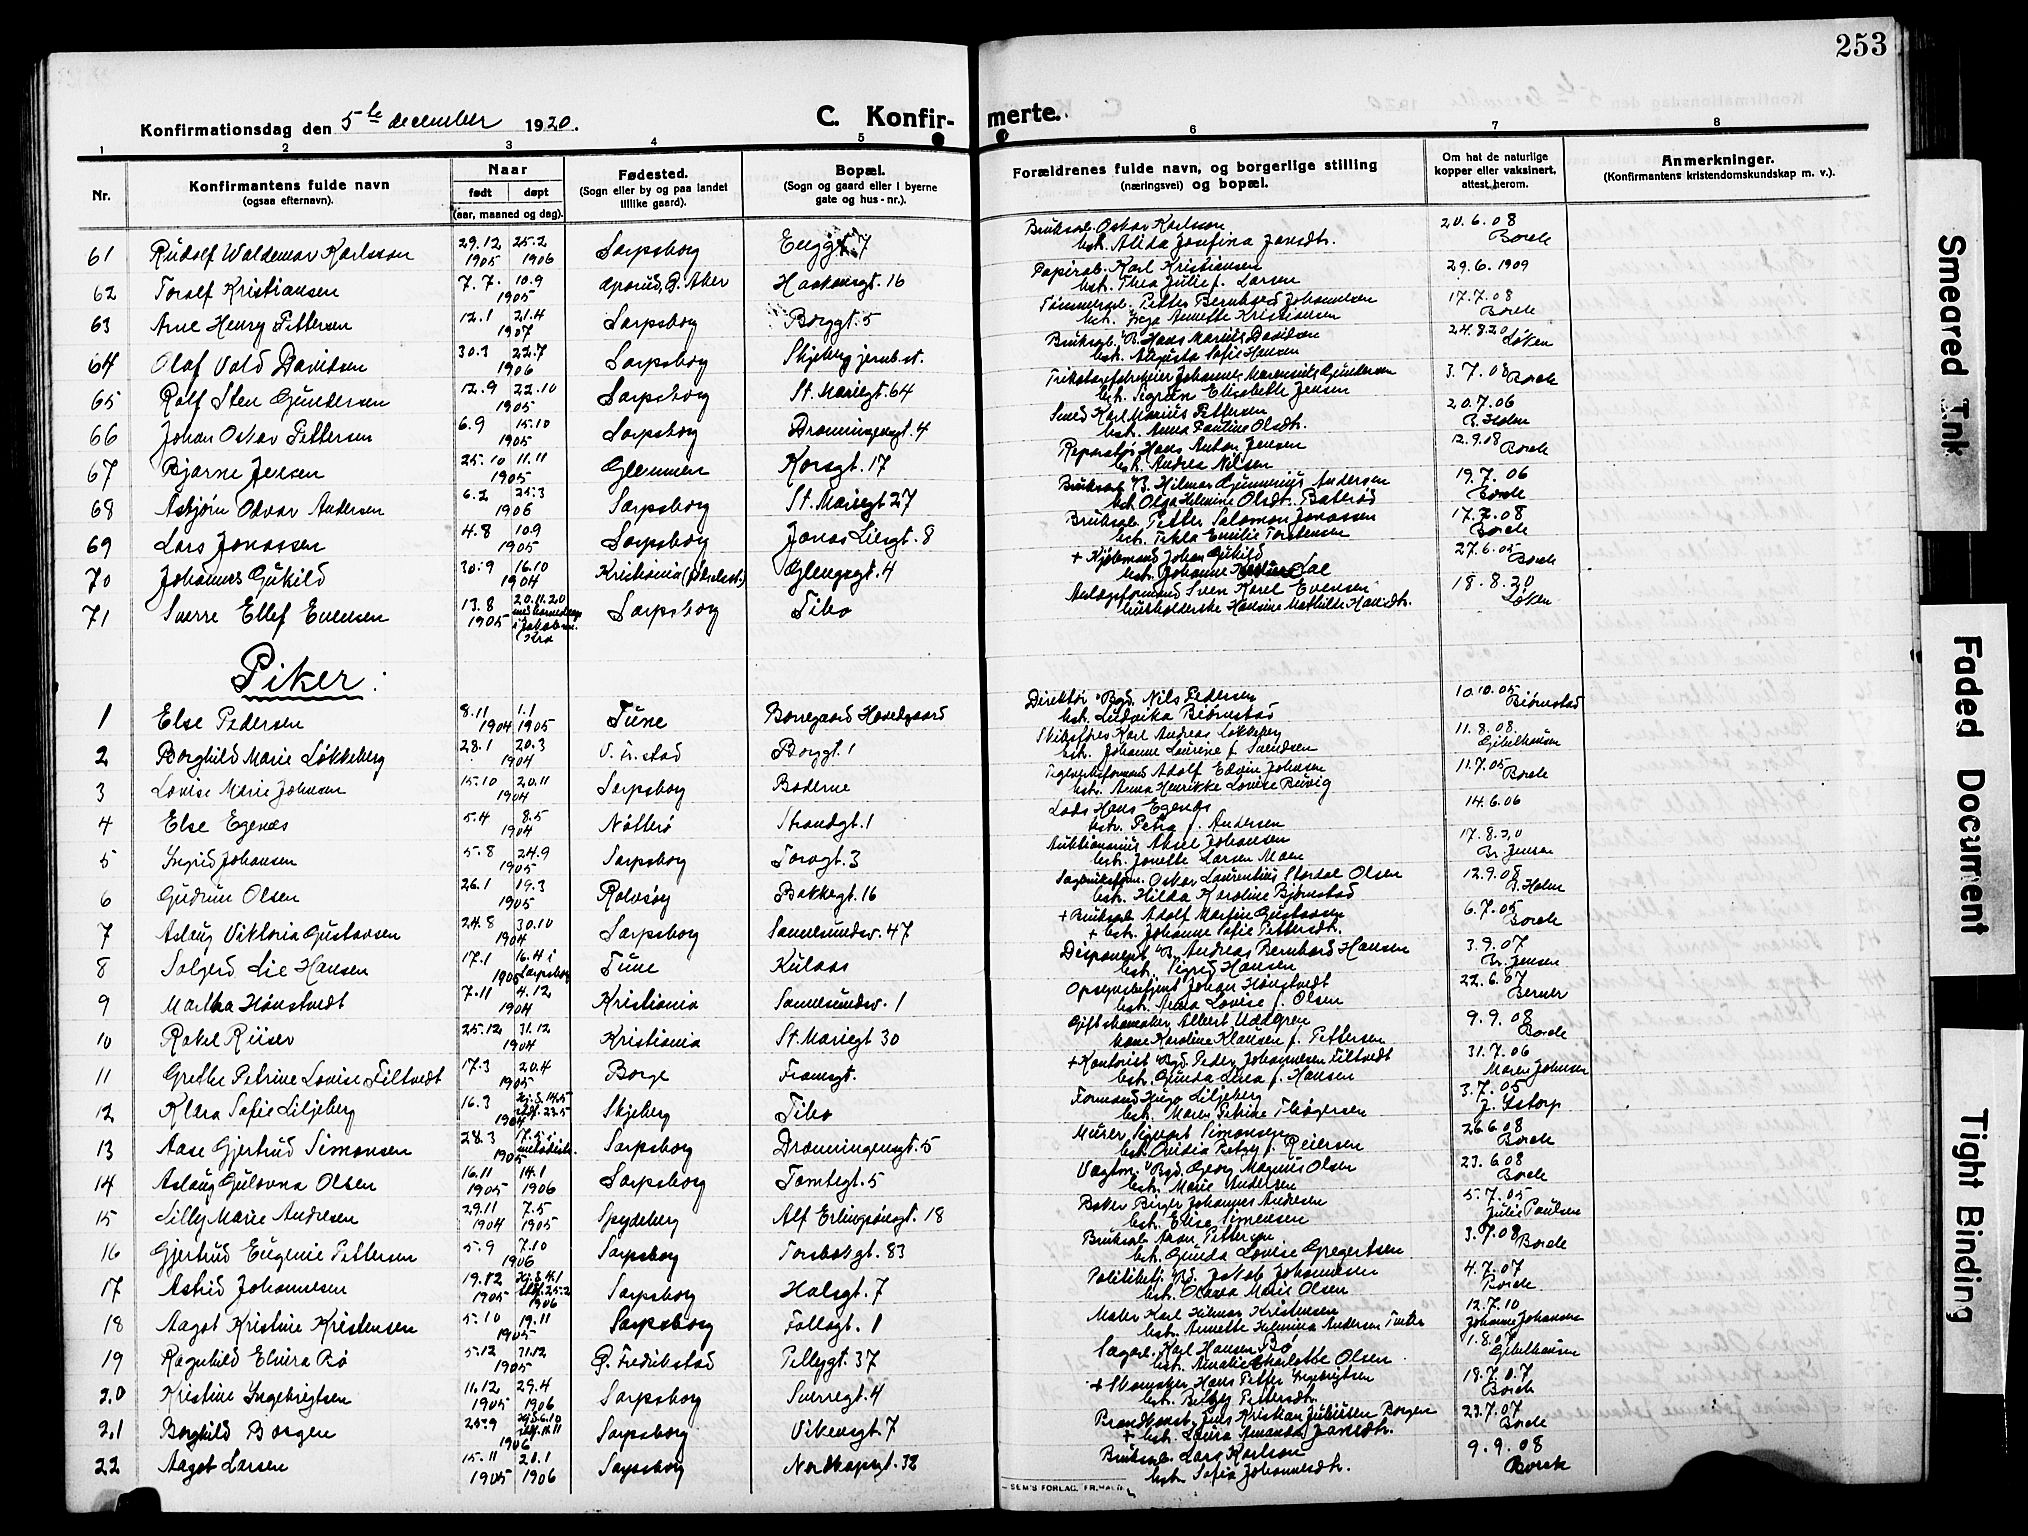 253
Konfirmationsdag den 5te december 1920.
C. Konfir-
merte.
1 2 3 4 5 6 7 8
Nr.
Konfirmantens fulde navn
(ogsaa efternavn).
Naar
født døpt
(aar, maaned og dag).
Fødested.
(Sogn eller by og paa landet
tillike gaard).
Bopæl.
(Sogn og gaard eller i byerne
gate og hus-nr.).
Forældrenes fulde navn, og borgerlige stilling
(næringsvei) og bopæl.
Om hat de naturlige
kopper eller vaksinert,
attest herom.
Anmerkninger.
(Konfirmantens kristendomskundskap m. v.).
61 Rudolf Waldemar Karlsson 29.12 1905 25.2 1906 Sarpsborg 7 Bruksarb. Oskar Karlsson
hstr. Alida Josefina Jansdtr. 20.6.08 Borch
62 Toralf Kristiansen 7.7. 10.9 1905 Ø. Aker Haakonsgt. 16 Papirarb. Karl Kristiansen
hstr. Thea Julie f. Larsen 29.6.1909
63 Arne Henry Pettersen 12.1 21.4 1907 Sarpsborg Borggt. 5 Tømmerarb. Petter Bernhard Johannesen
hstr. Inga Annette Kristiansen 17.7.08 Borch
64 Olaf Vold Davidsen 30.3 22.7 1906 Sarpsborg Skjeberg jernb.st. Bruksarb. Hans Marius Davidsen
hstr. Augusta Sofie Hansen 24.8.20 Løken
65 Rolf Sten Gundersen 12.9 22.10 1905 Sarpsborg St. Mariegt. 64 Trikotagefabrikeier Johannes Marensius Gundersen
hstr. Sigrun Elisabeth Jensen 3.7.08 Borch
66 Johan Oskar Pettersen 6.9 15.10 1905 Sarpsborg Dronningensgt. 4 Smed Karl Marius Pettersen
hstr. Anna Pauline Olsdtr. 20.7.06 B. Holm
67 Bjarne Jensen 25.10 11.11 1905 Glemmen Korsgt. 17 Reparatør Hans Anton Jensen
hstr. Andrea Nilsen 12.9.08 Borch
68 Asbjørn Odvar Andersen 6.2 25.3 1906 Sarpsborg St. Mariegt 27 Bruksarb. Hilmar Gunnerius Andersen
hstr. Olga Helmine Olsdtr. Baterød 19.7.06 Borch
69 Lars Jonassen 4.8 10.9 1905 Sarpsborg Jonas Liesgt. 8 Bruksarb. Petter Salomon Jonassen
hstr. Tekla Emilie Torstensen 17.7.08 Borch
70 Johannes Gukild 30.9 16.10 1904 Kristiania Glengsgt. 4 + Kjøbmand Johan Gukild
hstr. Johanne Lae 27.6.05 Borch
71 Sverre Ellef Evensen 13.8 1905 20.11.20 Sarpsborg Tibo Anlægsformand Sven Karel Evensen
husholderske Hansine Mathilde Hansdtr. 18.8.20 Løken
Piker:
1 Else Pedersen 8.11 1904 1.1 1905 Tune Borregaard Hovedgaard Direktør Nils Pedersen
hstr. Ludvika Bjørnstad 10.10.05 Bjørnstad
2 Borghild Marie Løkkeberg 28.1 20.3 1904 V. Fr.stad Borggt. 1 Skibsfører Karl Andreas Løkkeberg
hstr. Johanne Laurine f. Svendsen 11.8.08 Gibelhausen
3 Lovise Marie Johnsen 15.10 20.11 1904 Sarpsborg Boderne Teglverksformand Adolf Edvin Johnsen
hstr. Anna Henrikke Lovise Buvig 11.7.05 Borch
4 Else Egenæs 5.4 8.5 1904 Nøtterø Strandgt. 1 Lods Hans Egenæs
hstr. Petra f. Andersen 14.6.06
5 Ingrid Johansen 5.8 24.9 1905 Sarpsborg Torvgt. 3 Auktionarius Aksel Johansen
hstr. Jonette Larsen Moen 17.8.20 Br. Jensen
6 Gudrun Olsen 26.1 19.3 1905 Rolvsøy Bakkegt. 16 Sagbruksform. Oskar Laurentius Stordal Olsen
hstr. Hilda Karoline Bjørnstad 12.9.08 B. Holm
7 Aslaug Viktoria Gustavsen 24.8 30.10 1904 Sarpsborg Sannesundsv. 47 + Bruksarb. Adolf Martin Gustavsen
+ hstr. Johanne Sofie Pettersdtr. 6.7.05 Borch
8 Solgerd Lie Hansen 17.1 16.4 i 1905 Sarpsborg Tune Kulaas Disponent Andreas Bernhard Hansen
hstr. Sigrid Hansen 3.9.07 Br. Jensen
9 Martha Hønstvedt 7.11 4.12 1904 Kristiania Sannesundsv. 1 Johan Hønstvedt
hstr. Anna Lovise f. Olsen 22.6.07 Berner
10 Rakel Riiser 25.12 31.12 1904 Kristiania St. Mariegt 30 Albert Uddgren
Karoline Klausen f. Pettersen 9.9.08 Borch
11 Grethe Petrine Lovise Filtvedt 17.3 20.4 1905 Borge Framsgt. + Kontorist Peder Johannesen Filtvedt
hstr. Gunda Lovise f. Hansen 31.7.06 Maren Johnsen
12 Klara Sofie Liljeberg 16.3 hj.d. 14.5 stdf. 23.5 1904 Skjeberg Tibo Formand Hugo Liljeberg
hstr. Maren Petrine Thøgersen 3.7.05 J. Istorp
13 Aase Gjertrud Simonsen 28.3 17.5 i metodistk. 1905 Sarpsborg Dronningensgt. 5 Murer Sigvart Simonsen
hstr. Ovidia Petzy f. Reiersen 26.6.08 Borch
14 Aslaug Gulovna Olsen 16.11 1905 14.1 1906 Sarpsborg Tomtegt. 5 Vagtm. Georg Magnus Olsen
hstr. Marie Andersen 23.6.08 Borch
15 Lilly Marie Andresen 29.11 1904 7.5 1905 Spydeberg Alf Erlingsønsgt. 18 Baker Birger Johannes Andresen
hstr. Elise Simensen 5.7.05 Julie Paulsen
16 Gjertrud Eugenie Pettersen 5.9 7.10 1906 Sarpsborg Torsbakgt. 83 Bruksarb. Aron Pettersen
hstr. Gunda Lovise Gregertsen 3.7.08 Borch
17 Astrid Johannesen 19.12 1905 hj.d. 4.1 stdf. 25.2 1906 Sarpsborg Halsgt. 7 Politibetj. Jakob Johannesen
hstr. Olava Marie Olsen 4.7.07 Borch
18 Aagot Kristine Kristensen 5.10 19.11 1905 Sarpsborg Follogt. 1 Maler Karl Hilmar Kristensen
hstr. Annette Helmina Andersen 12.7.10 Johanne Johansen
19 Ragnhild Elvira Bø 5.12 31.12 1905 Ø. Fredrikstad Pellygt. 37 Sagarb. Karl Hansen Bø
hstr. Amalie Charlotte Olsen 1.8.07 Gibelhausen
20 Kristine Ingebrigtsen 11.12 1905 29.4 1906 Sarpsborg Sverregt. 4 + Skomaker Hans Petter Ingebrigtsen
hstr. Betzy Pettersdtr. 18.7.07 Borch
21 Borghild Borgen 25.9 hj.d. 6.10 stdf. 11.11 1906 Sarpsborg Vikensgt. 7 Brandkonst. Jens Kristian Juliussen Borgen
+ hstr. Laura Amanda Jansdtr. 23.7.07 Borch
22 Aagot Larsen 15.11 1905 21.1 1906 Sarpsborg Nordkapgt. 32 Bruksarb. Lars Karlson
hstr. Sofia Johannesdtr. 9.9.08 Borch
SEM'S FORLAG, FR.HALD
Smeared Ink
Faded Document
Tight Binding